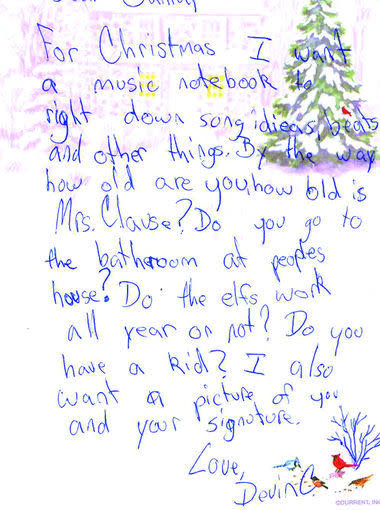 For Christmas I want
a music notebook to
right down song idieas, beats
and other things. By the way
how old are you, how old is
Mrs. Clause? Do you go to
the bathroom at peoples
house? Do the elfs work
all year or not? Do you
have a kid? I also
want a picture of you
and your signature.
Love,
Devin C.
©CURRENT, IN